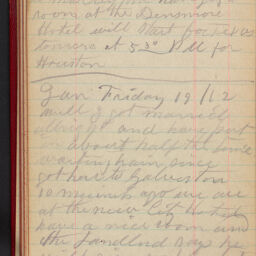 room at the Densmore
Hotel will start for
tomorro at 5 30 P.M for
Houston
Jan Friday 19/12
well I got married
allright and have put
in about half the time
since
got here to Galveston
10 minuits ago we are
at the new City Hotel
have a nice room and
the Landlord says he